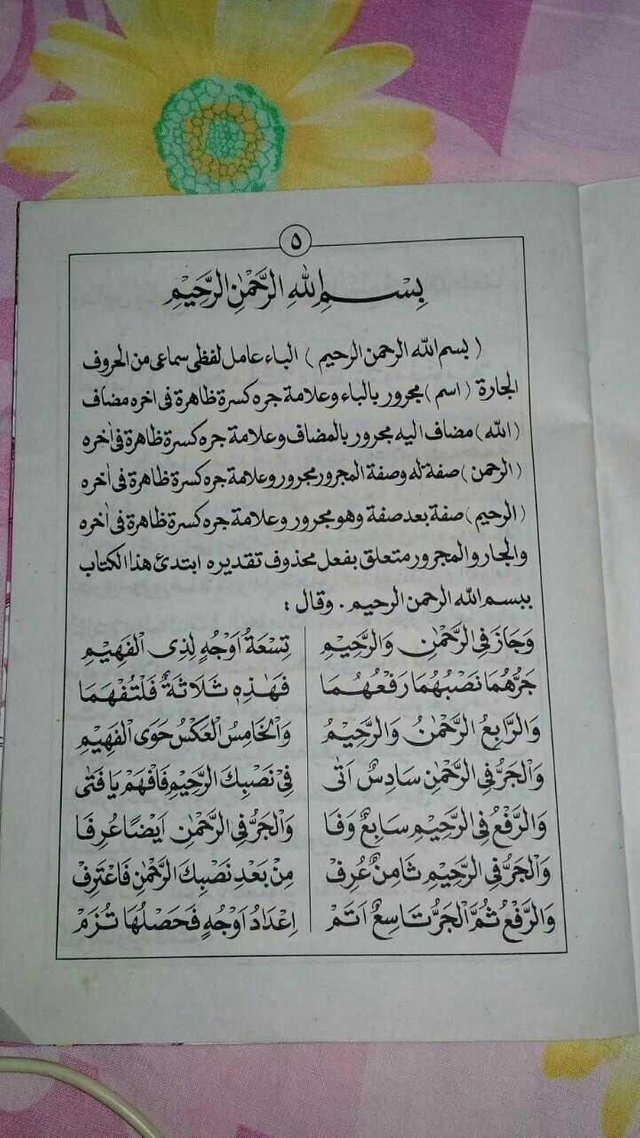 ٥
بِسْــــمِ اللهِ الرَّحْمٰنِ الرَّحِيْمِ
( بسم الله الرحمن الرحيم ) الباء عامل لفظى سماعى من الحروف
الجارة ( اسم ) مجرور بالباء وعلامة جره كسرة ظاهرة فى اخره مضاف
( الله ) مضاف اليه مجرور بالمضاف وعلامة جره كسرة ظاهرة فى أخره
( الرحمن ) صفة له وصفة المجرور مجرور وعلامة جره كسرة ظاهرة فى أخره
( الرحيم ) صفة بعد صفة وهو مجرور وعلامة جره كسرة ظاهرة فى أخره
والجار والمجرور متعلق بفعل محذوف تقديره ابتدئ هذا الكتاب
ببسم الله الرحمن الرحيم . وقال :
وَجَازَ فِى الرَّحْمٰنِ وَالرَّحِيْمِ تِسْعَةُ اَوْجُهٍ لِذِى الْفَهِيْمِ
جَرُّهُمَا نَصْبُهُمَا رَفْعُهُمَا فَهٰذِهٖ ثَلَاثَةٌ فَلْتُفْهَمَا
وَالرَّابِعُ الرَّحْمٰنُ وَالرَّحِيْمُ وَالْخَامِسُ الْعَكْسُ حَوَى الْفَهِيْمِ
وَالْجَرُّ فِى الرَّحْمٰنِ سَادِسٌ اَتٰى فِىْ نَصْبِكَ الرَّحِيْمِ فَافْهَمْ يَافَتٰى
وَالرَّفْعُ فِى الرَّحِيْمِ سَابِعٌ وَفَا وَالْجَرُّ فِى الرَّحْمٰنِ اَيْضًا عُرِفَا
وَالْجَرُّ فِى الرَّحِيْمِ ثَامِنٌ عُرِفْ مِنْ بَعْدِ نَصْبِكَ الرَّحْمٰنِ فَاعْتَرِفْ
وَالرَّفْعُ ثُمَّ الْجَرُّ تَاسِعٌ اَتَمْ اِعْدَادُ اَوْجُهٍ فَحَصْلُهَا تُزَمْ